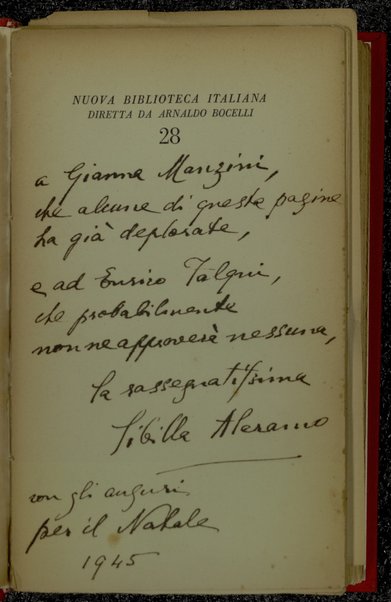 NUOVA BIBLIOTECA ITALIANA
DIRETTA DA ARNALDO BOCELLI
28
a Gianna Manzini,
che alcune di queste pagine
ha già deplorate,
e ad Enrico Falqui,
che probabilmente
non ne approverà nessuna,
la rassegnatissima
Sibilla Aleramo
con gli auguri
per il Natale
1945